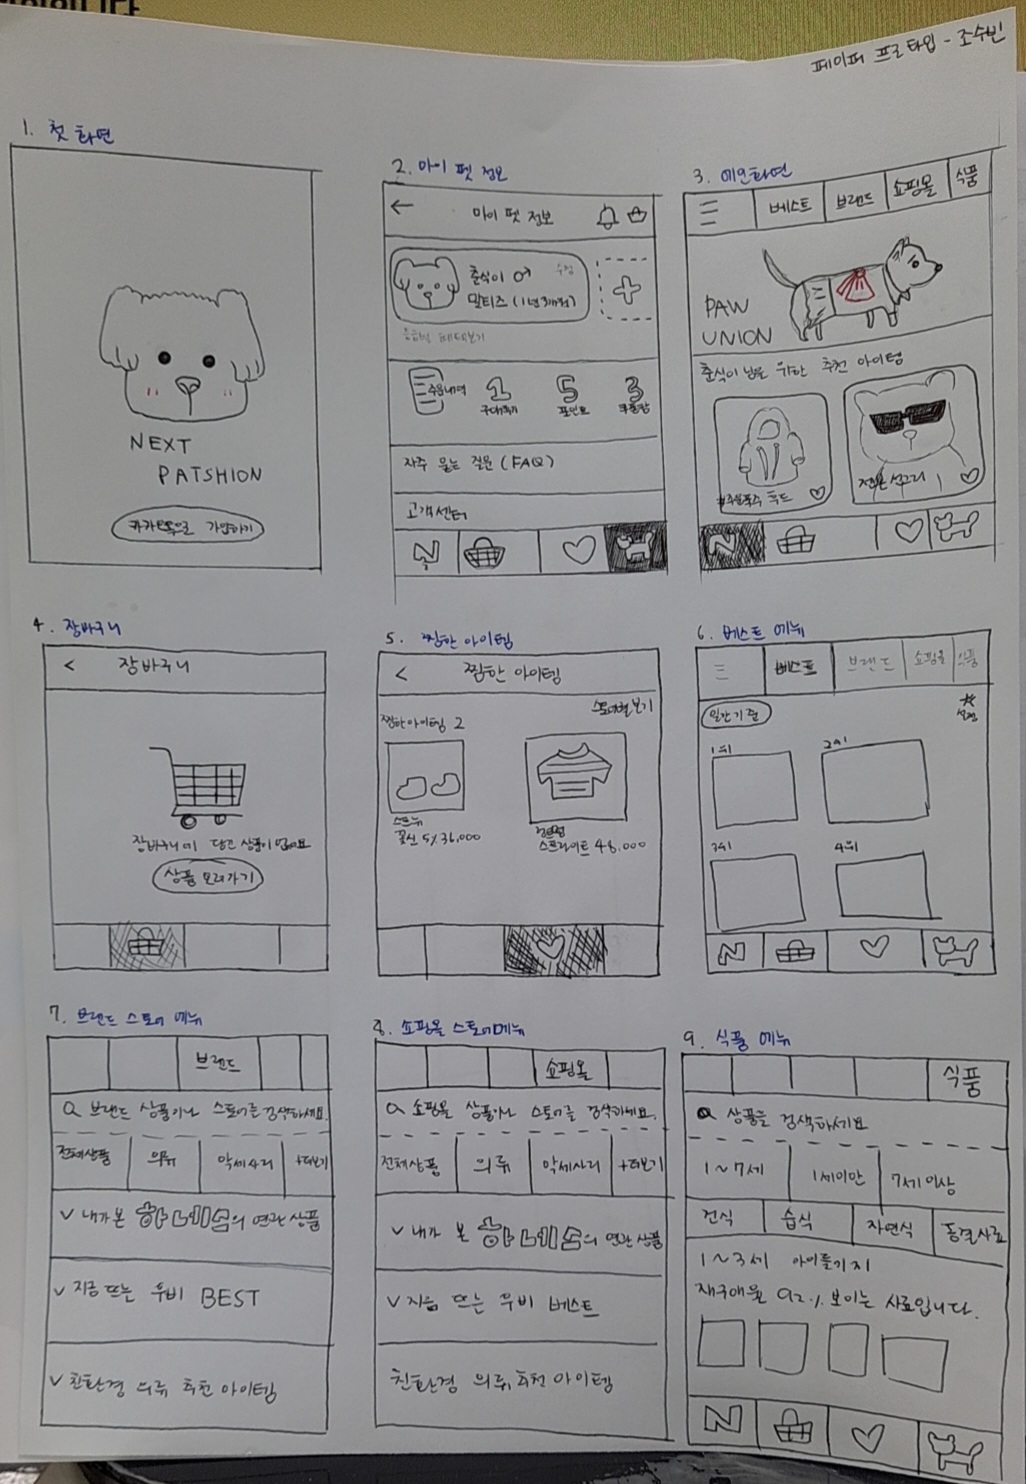 페이퍼 프로타입 - 조수빈
1. 첫 화면
NEXT
PATSHION
카카오톡으로 가입하기
2. 마이 펫 정보
마이 펫 정보
춘식이 ♂
수정
말티즈 (1년3개월)
주문내역
1
5
포인트
3
자주 묻는 질문 (FAQ)
고객센터
N
3. 메인화면
베스트 브랜드 쇼핑몰 식품
PAW
UNION
춘식이 님을 위한 추천 아이템
후드
N
4. 장바구니
< 장바구니
장바구니에 담긴 상품이 없어요
상품 보러가기
5. 찜한 아이템
< 찜한 아이템
스토어별 보기
찜한 아이템 2
꽃신 5% 36,000
스트라이트 48,000
6. 베스트 메뉴
베스트 브랜드 쇼핑몰 식품
일간기준
설정
1위 2위
3위 4위
N
7. 브랜드 스토어 메뉴
브랜드
브랜드 상품이나 스토어를 검색하세요.
전체상품 의류 악세사리 +더보기
∨ 내가 본 하네스의 연관 상품
∨ 지금 뜨는 우비 BEST
∨ 친환경 의류 추천 아이템
8. 쇼핑몰 스토어메뉴
쇼핑몰
쇼핑몰 상품이나 스토어를 검색하세요.
전체상품 의류 악세사리 +더보기
∨ 내가 본 하네스의 연관 상품
∨ 지금 뜨는 우비 베스트
친환경 의류 추천 아이템
9. 식품 메뉴
식품
상품을 검색하세요
1~7세 1세미만 7세 이상
건식 습식 자연식 동결사료
1~3세 아이들기지
재구매율 92% 보이는 사료입니다.
N